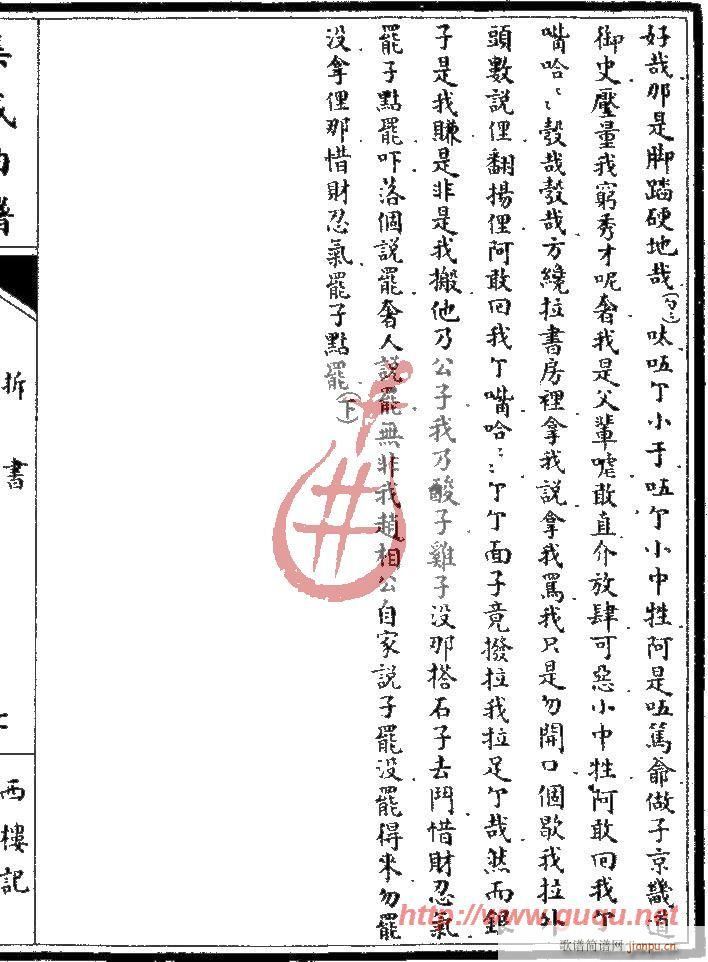 好哉那是脚踏硬地哉(白)呔𠵽丫小于𠵽丫小中牲阿是𠵽篤爺做子京畿道
御史壓量我窮秀才呢奢我是父輩嘘敢直介放肆可惡小中牲阿敢回我丫
嘴哈〻彀哉彀哉方纔拉書房裡拿我説拿我罵我只是勿開口個歇我拉外
頭數説俚翻揚俚阿敢回我丫嘴哈〻丫丫面子竟撥拉我拉足丫哉然而銀
子是我賺是非是我搬他乃公子我乃酸子雞子没那搭石子去鬥惜財忍氣
罷子點罷吓落個説罷奢人説罷無非我趙相公自家説子罷没罷得來勿罷
没拿俚那惜財忍氣罷子點罷(下)
拆書
西樓記
http://www.guqu.net
歌谱简谱网
jianpu.cn